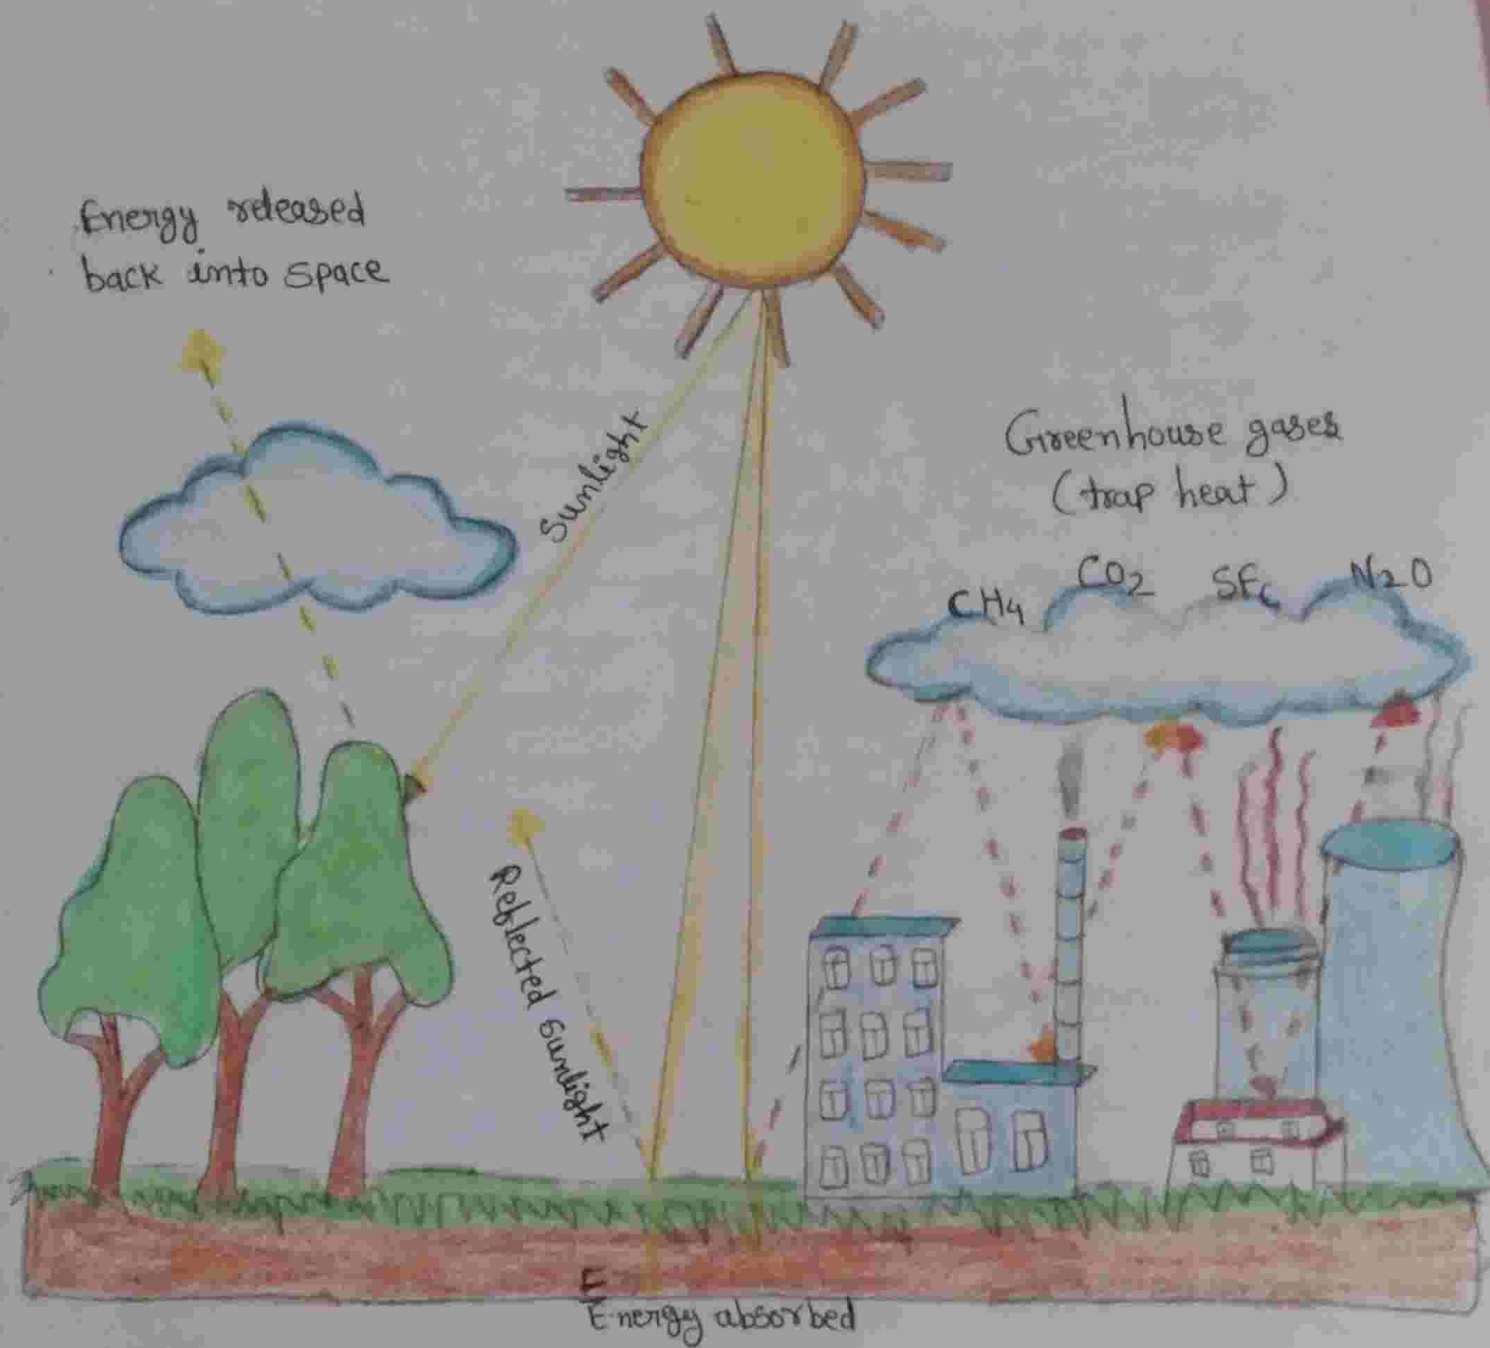 Energy released
back into space
Sunlight
Greenhouse gases
(trap heat)
CH4 CO2 SF6 N2O
Reflected sunlight
E
Energy absorbed